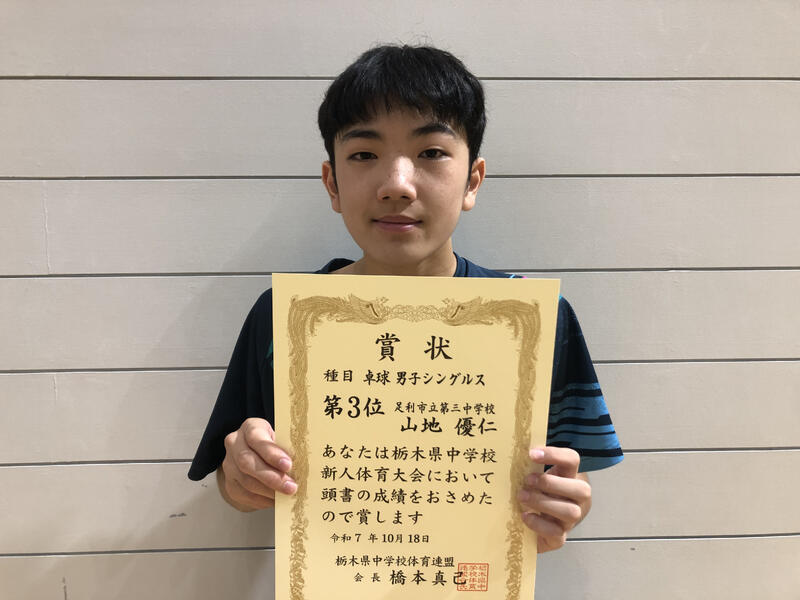 賞状
種目 卓球 男子シングルス
第3位 足利市立第三中学校
山地 優仁
あなたは栃木県中学校
新人体育大会において
頭書の成績をおさめた
ので賞します
令和7年10月18日
栃木県中学校体育連盟
会長 橋本真己